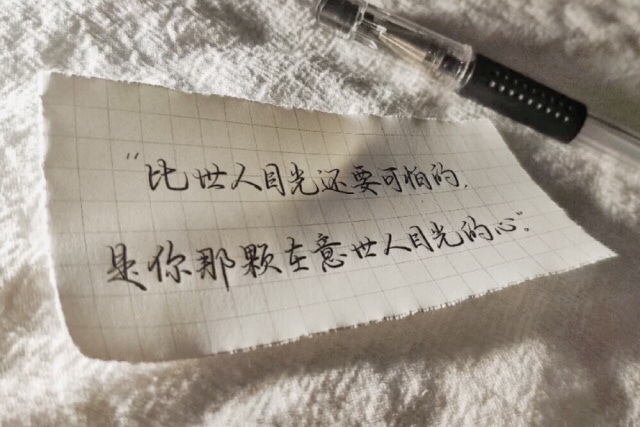 “比世人目光还要可怕的,
是你那颗在意世人目光的心”。